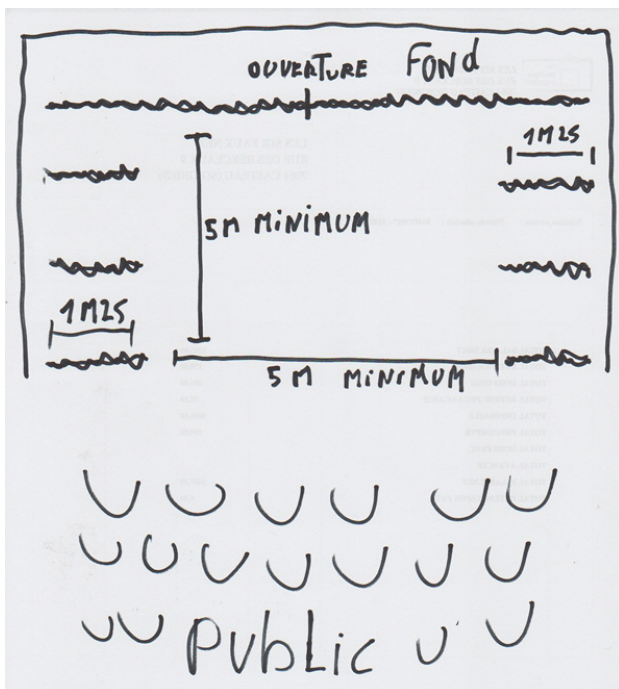 OUVERTURE FOND
1M25
5M MINIMUM
1M25
5M MINIMUM
PUbLic